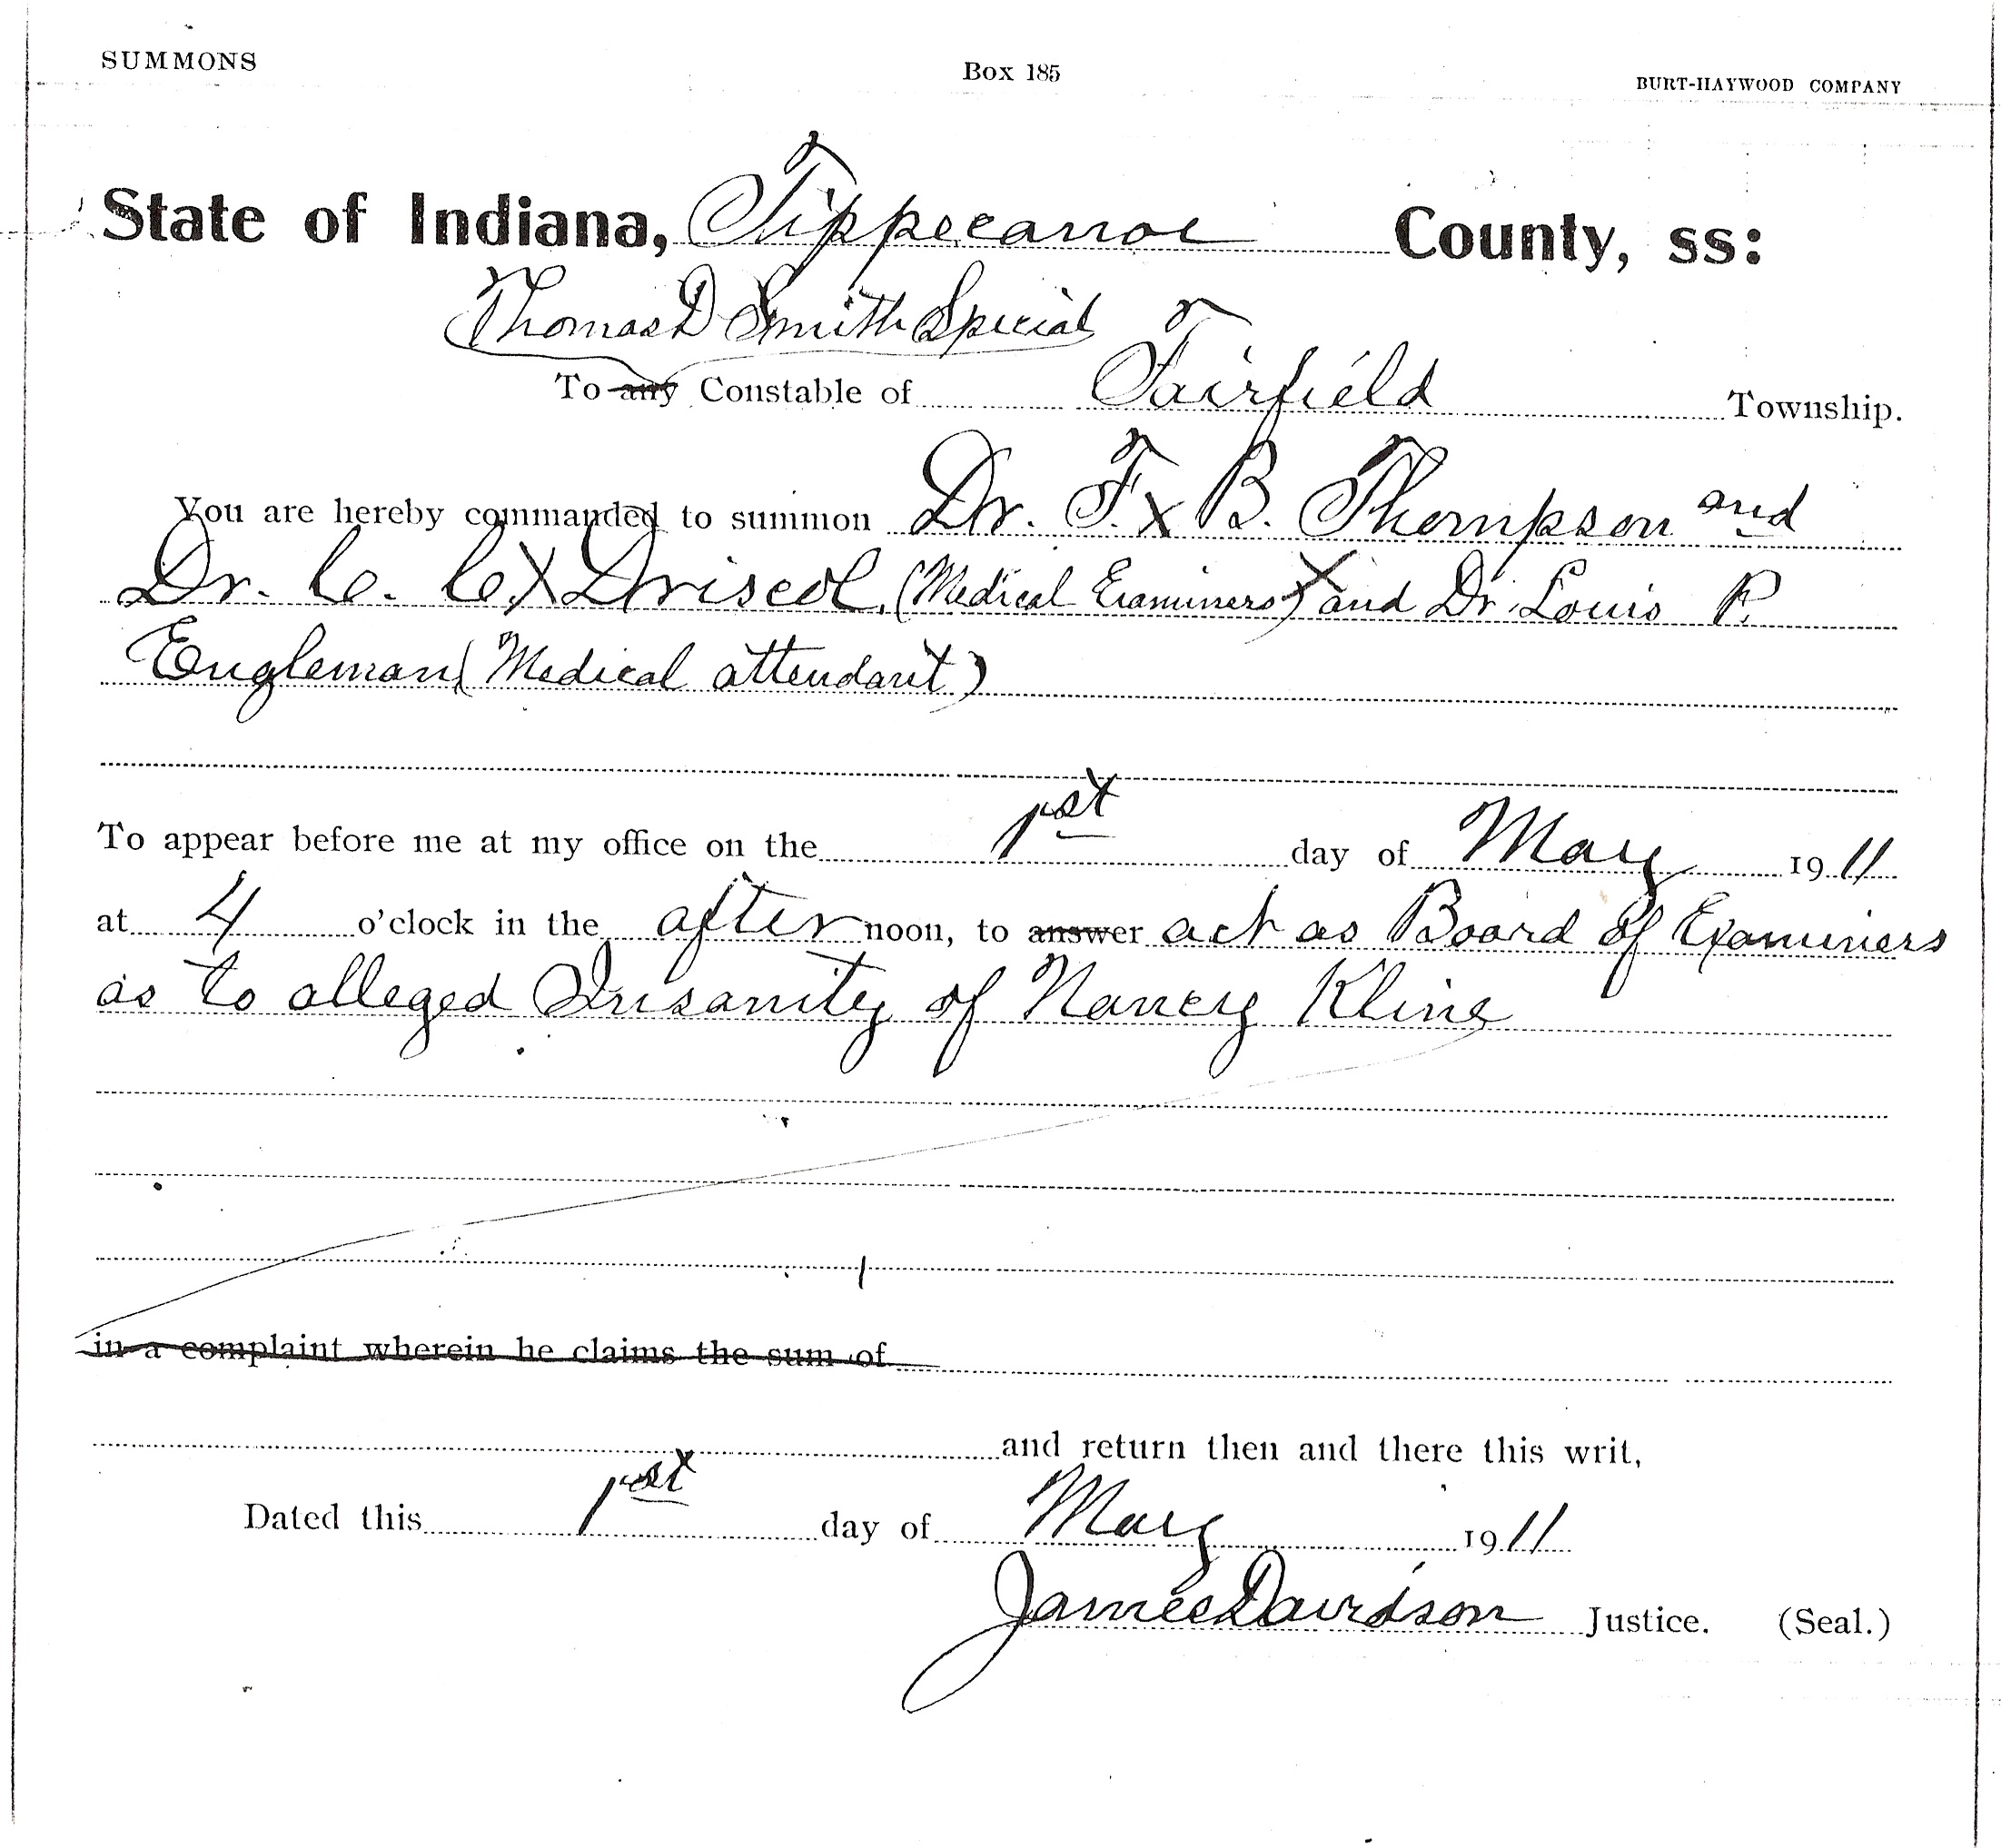 SUMMONS Box 185 BURT-HAYWOOD COMPANY
State of Indiana, Tippecanoe County, ss:
Thomas D Smith Special
To any Constable of Fairfield Township.
You are hereby commanded to summon Dr. F. B. Thompson and
Dr. C. C. Driscol, (Medical Examiners) and Dr. Louis P.
Engleman (Medical attendant)
To appear before me at my office on the 1st day of May 1911
at 4 o'clock in the after noon, to answer act as Board of Examiners
as to alleged Insanity of Nancy Kline
in a complaint wherein he claims the sum of
and return then and there this writ,
Dated this 1st day of May 1911
James Davidson Justice. (Seal.)